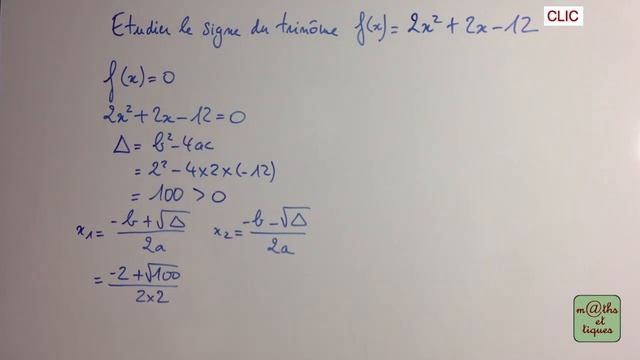 CLIC
Etudier le signe du trinôme f(x) = 2x² + 2x - 12
f(x) = 0
2x² + 2x - 12 = 0
Δ = b² - 4ac
= 2² - 4×2×(-12)
= 100 > 0
x₁ = (-b + √Δ)/2a x₂ = (-b - √Δ)/2a
= (-2 + √100)/2×2
m@ths
et
tiques